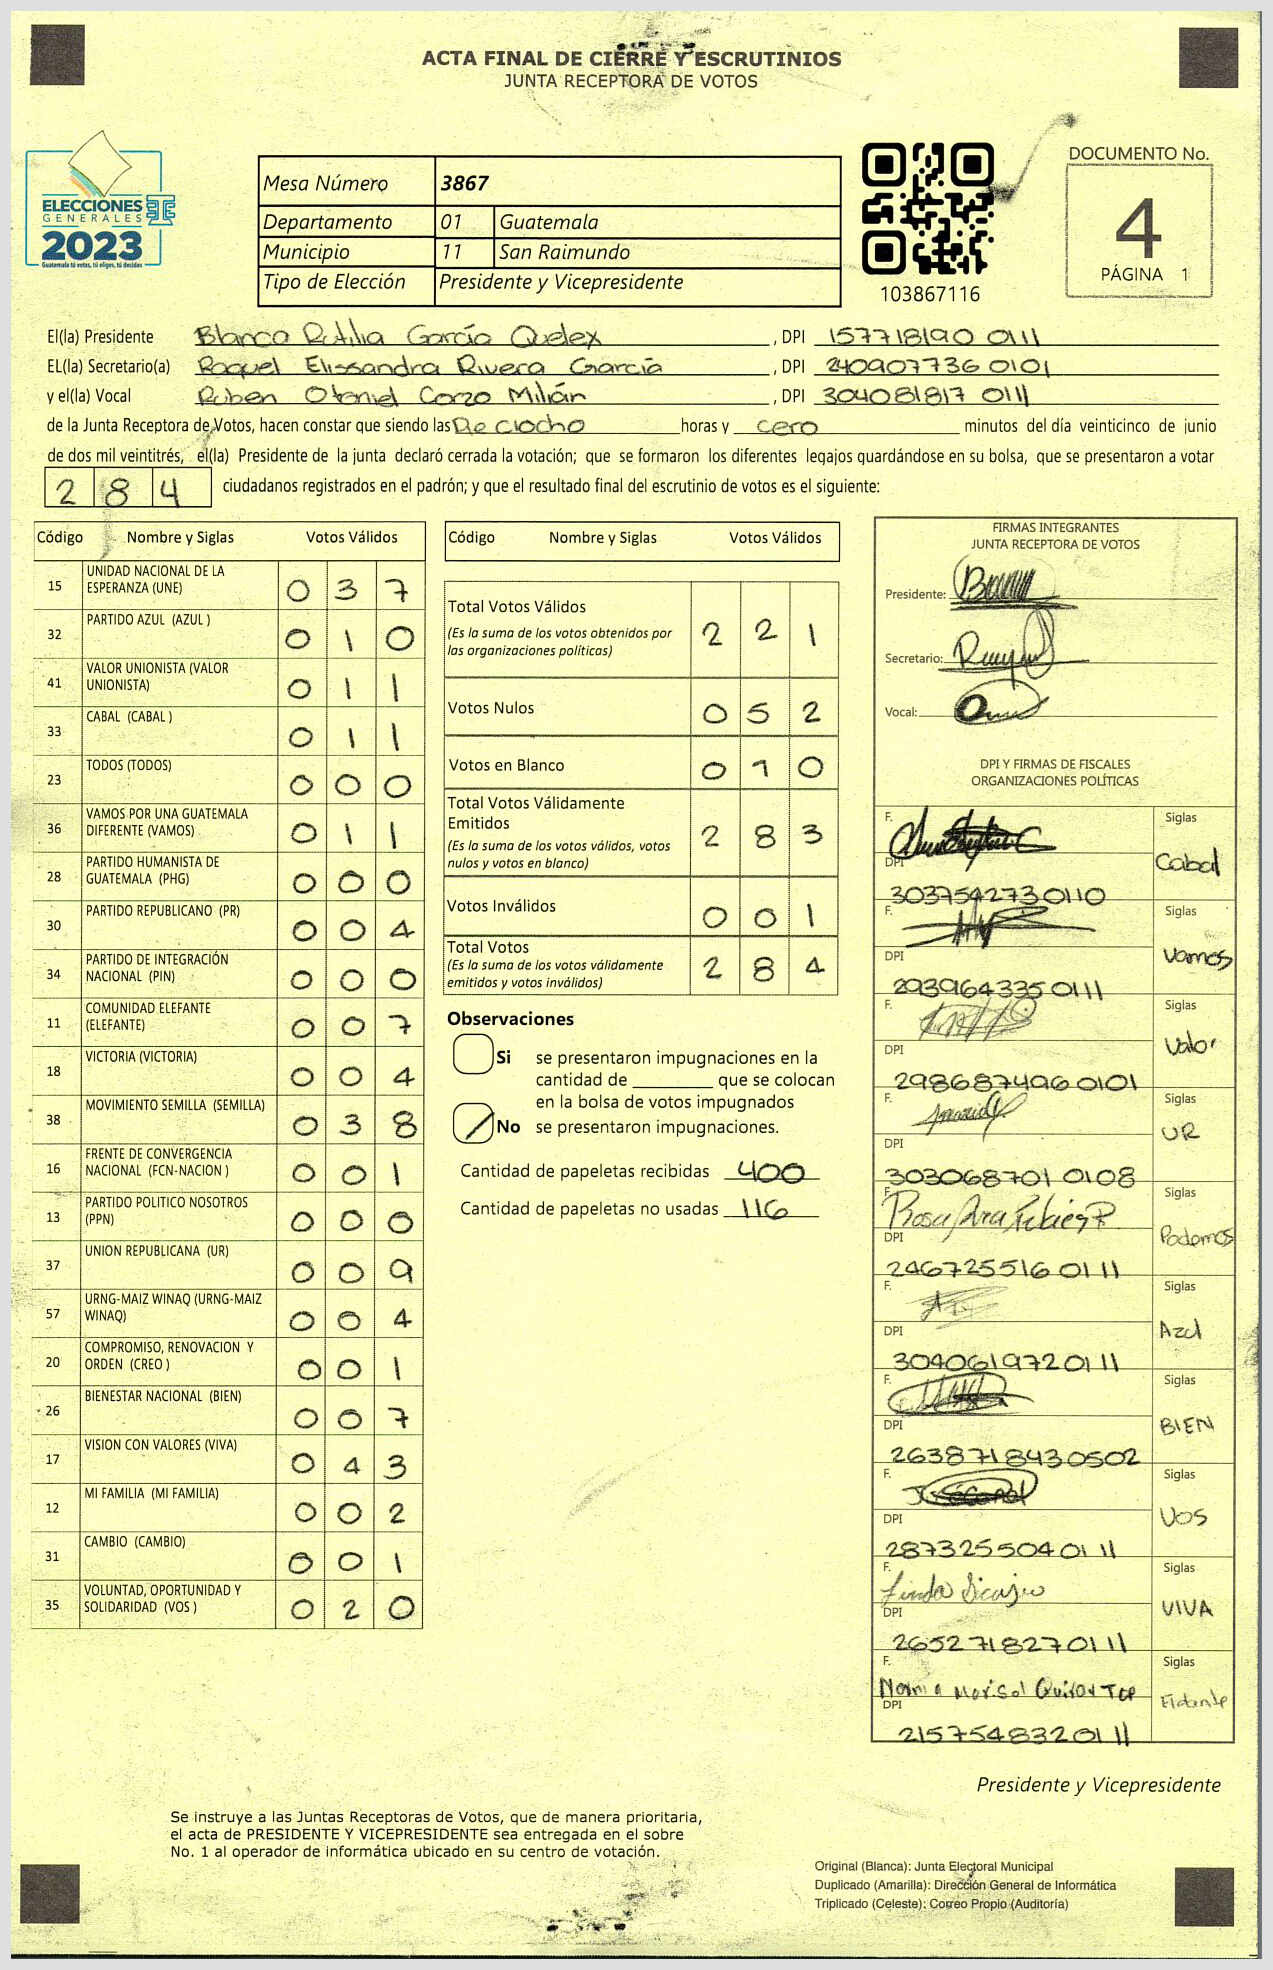 ACTA FINAL DE CIERRE Y ESCRUTINIOS
JUNTA RECEPTORA DE VOTOS
ELECCIONES
GENERALES
2023
Guatemala tú votas, tú eliges, tú decides
Mesa Número 3867
Departamento 01 Guatemala
Municipio 11 San Raimundo
Tipo de Elección Presidente y Vicepresidente
103867116
DOCUMENTO No.
4
PÁGINA 1
El(la) Presidente Blanca Rutilia García Quelex, DPI 157718190 0111
EL(la) Secretario(a) Raquel Elissandra Rivera García, DPI 240907736 0101
y el(la) Vocal Ruben Otoniel Corzo Milián, DPI 304081817 0111
de la Junta Receptora de Votos, hacen constar que siendo las Deciocho horas y cero minutos del día veinticinco de junio
de dos mil veintitrés, el(la) Presidente de la junta declaró cerrada la votación; que se formaron los diferentes legajos guardándose en su bolsa, que se presentaron a votar
284 ciudadanos registrados en el padrón; y que el resultado final del escrutinio de votos es el siguiente:
Código Nombre y Siglas Votos Válidos
15 UNIDAD NACIONAL DE LA ESPERANZA (UNE) 0 3 7
32 PARTIDO AZUL (AZUL ) 0 1 0
41 VALOR UNIONISTA (VALOR UNIONISTA) 0 1 1
33 CABAL (CABAL ) 0 1 1
23 TODOS (TODOS) 0 0 0
36 VAMOS POR UNA GUATEMALA DIFERENTE (VAMOS) 0 1 1
28 PARTIDO HUMANISTA DE GUATEMALA (PHG) 0 0 0
30 PARTIDO REPUBLICANO (PR) 0 0 4
34 PARTIDO DE INTEGRACIÓN NACIONAL (PIN) 0 0 0
11 COMUNIDAD ELEFANTE (ELEFANTE) 0 0 7
18 VICTORIA (VICTORIA) 0 0 4
38 MOVIMIENTO SEMILLA (SEMILLA) 0 3 8
16 FRENTE DE CONVERGENCIA NACIONAL (FCN-NACION ) 0 0 1
13 PARTIDO POLITICO NOSOTROS (PPN) 0 0 0
37 UNION REPUBLICANA (UR) 0 0 9
57 URNG-MAIZ WINAQ (URNG-MAIZ WINAQ) 0 0 4
20 COMPROMISO, RENOVACION Y ORDEN (CREO ) 0 0 1
26 BIENESTAR NACIONAL (BIEN) 0 0 7
17 VISION CON VALORES (VIVA) 0 4 3
12 MI FAMILIA (MI FAMILIA) 0 0 2
31 CAMBIO (CAMBIO) 0 0 1
35 VOLUNTAD, OPORTUNIDAD Y SOLIDARIDAD (VOS ) 0 2 0
Código Nombre y Siglas Votos Válidos
Total Votos Válidos 2 2 1
(Es la suma de los votos obtenidos por
las organizaciones políticas)
Votos Nulos 0 5 2
Votos en Blanco 0 1 0
Total Votos Válidamente
Emitidos 2 8 3
(Es la suma de los votos válidos, votos
nulos y votos en blanco)
Votos Inválidos 0 0 1
Total Votos 2 8 4
(Es la suma de los votos válidamente
emitidos y votos inválidos)
Observaciones
Si se presentaron impugnaciones en la
cantidad de ________ que se colocan
en la bolsa de votos impugnados
No se presentaron impugnaciones.
Cantidad de papeletas recibidas 400
Cantidad de papeletas no usadas 116
FIRMAS INTEGRANTES
JUNTA RECEPTORA DE VOTOS
Presidente:
Secretario:
Vocal:
DPI Y FIRMAS DE FISCALES
ORGANIZACIONES POLÍTICAS
F. Siglas
DPI Cabal
3037542730110
F. Siglas
DPI Vamos
2939643350111
F. Siglas
DPI Valor
2986874960101
F. Siglas
DPI UR
303068701 0108
F. Siglas
DPI Podemos
246725516 0111
F. Siglas
DPI Azul
3040619720111
F. Siglas
DPI BIEN
2638718430502
F. Siglas
DPI VOS
2873255040111
F. Linda Siglas
DPI VIVA
2652718270111
F. Siglas
Marisol
DPI
2157548320111
Presidente y Vicepresidente
Se instruye a las Juntas Receptoras de Votos, que de manera prioritaria,
el acta de PRESIDENTE Y VICEPRESIDENTE sea entregada en el sobre
No. 1 al operador de informática ubicado en su centro de votación.
Original (Blanca): Junta Electoral Municipal
Duplicado (Amarilla): Dirección General de Informática
Triplicado (Celeste): Correo Propio (Auditoría)